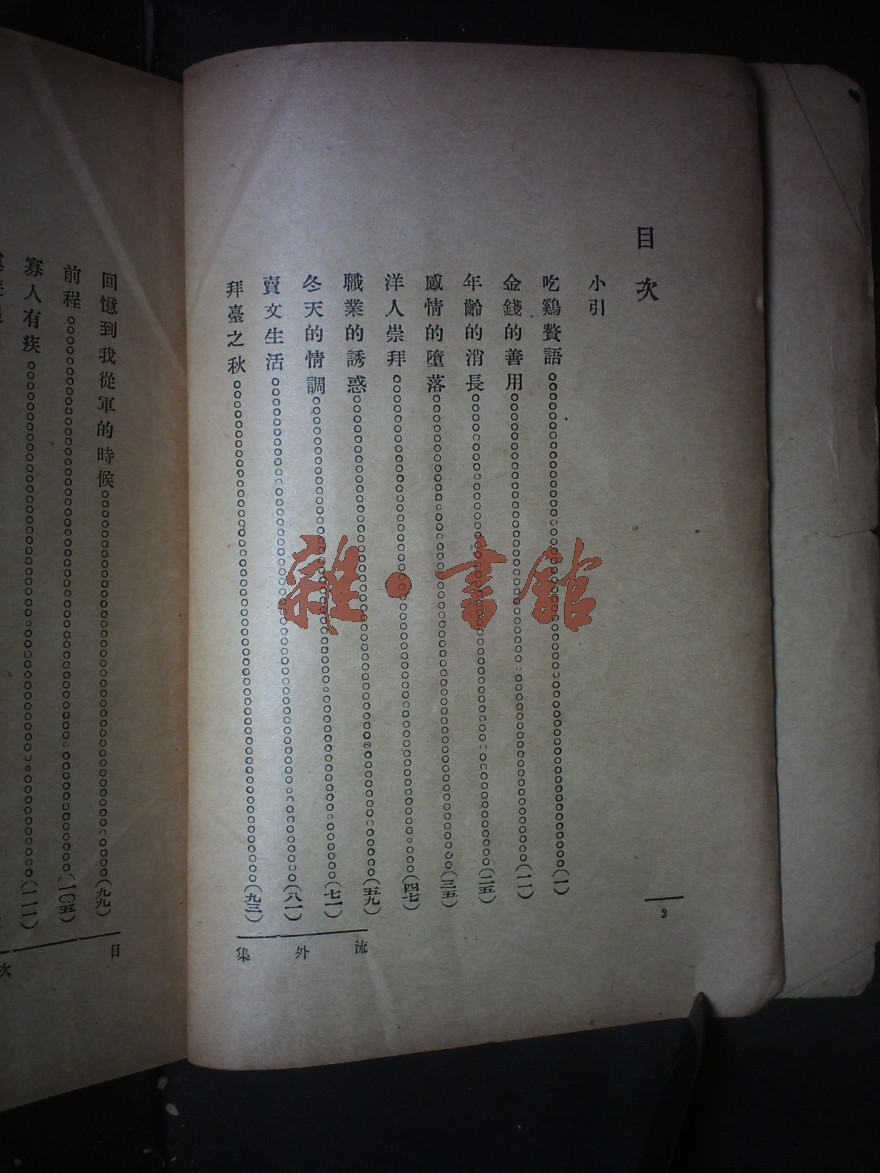 目次
小引
吃鷄贅語(一)
金錢的善用(一一)
年齡的消長(二五)
感情的墮落(三五)
洋人崇拜(四七)
職業的誘惑(五九)
冬天的情調(七一)
賣文生活(八一)
拜臺之秋(九三)
2
流外集
回憶到我從軍的時候(九九)
前程(一〇五)
寡人有疾(一一一)
目次
雜·書館